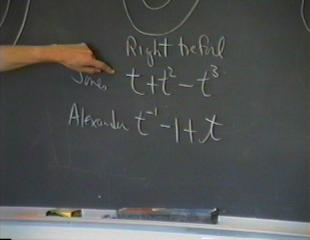 Right trefoil
Jones t + t² - t³
Alexander t⁻¹ - 1 + t